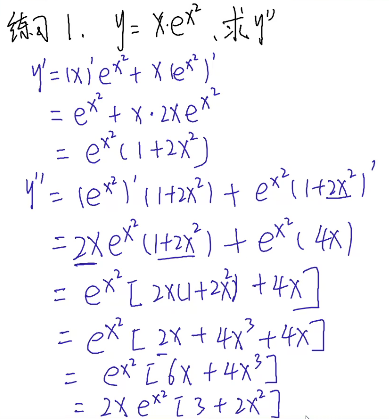 练习1. y=x·e^{x^2}, 求y''
y'=(x)'e^{x^2}+x(e^{x^2})'
=e^{x^2}+x·2xe^{x^2}
=e^{x^2}(1+2x^2)
y''=(e^{x^2})'(1+2x^2)+e^{x^2}(1+2x^2)'
=2xe^{x^2}(1+2x^2)+e^{x^2}(4x)
=e^{x^2}[2x(1+2x^2)+4x]
=e^{x^2}[2x+4x^3+4x]
=e^{x^2}[6x+4x^3]
=2xe^{x^2}[3+2x^2]